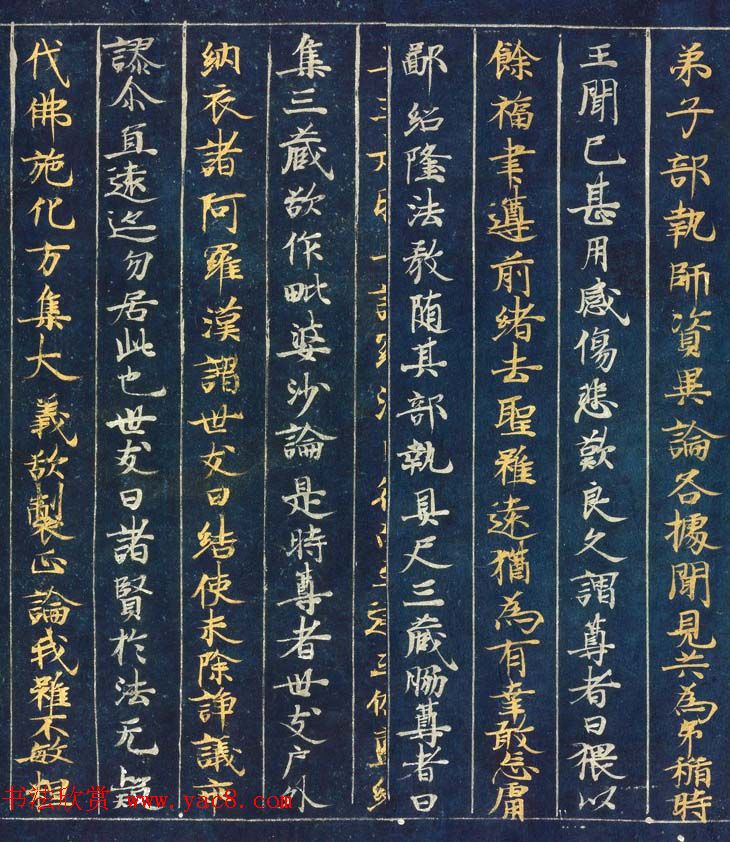 弟子部執師資異論各據聞見共為時
王聞已甚用感傷悲歎良久謂尊者曰猥以
餘福聿遵前緒去聖雖遠猶為有幸敢忘庸
鄙紹隆法教随其部執具尺三藏脇尊者曰
集三藏欲作毗婆沙論是時尊者世友户外
納衣諸阿羅漢謂世友曰結使未除諍議乖
謬尒宜遠迩勿居此也世友曰諸賢於法无疑
代佛施化方集大義欲製正論我雖不敏粗
书法欣赏 www.yac8.com